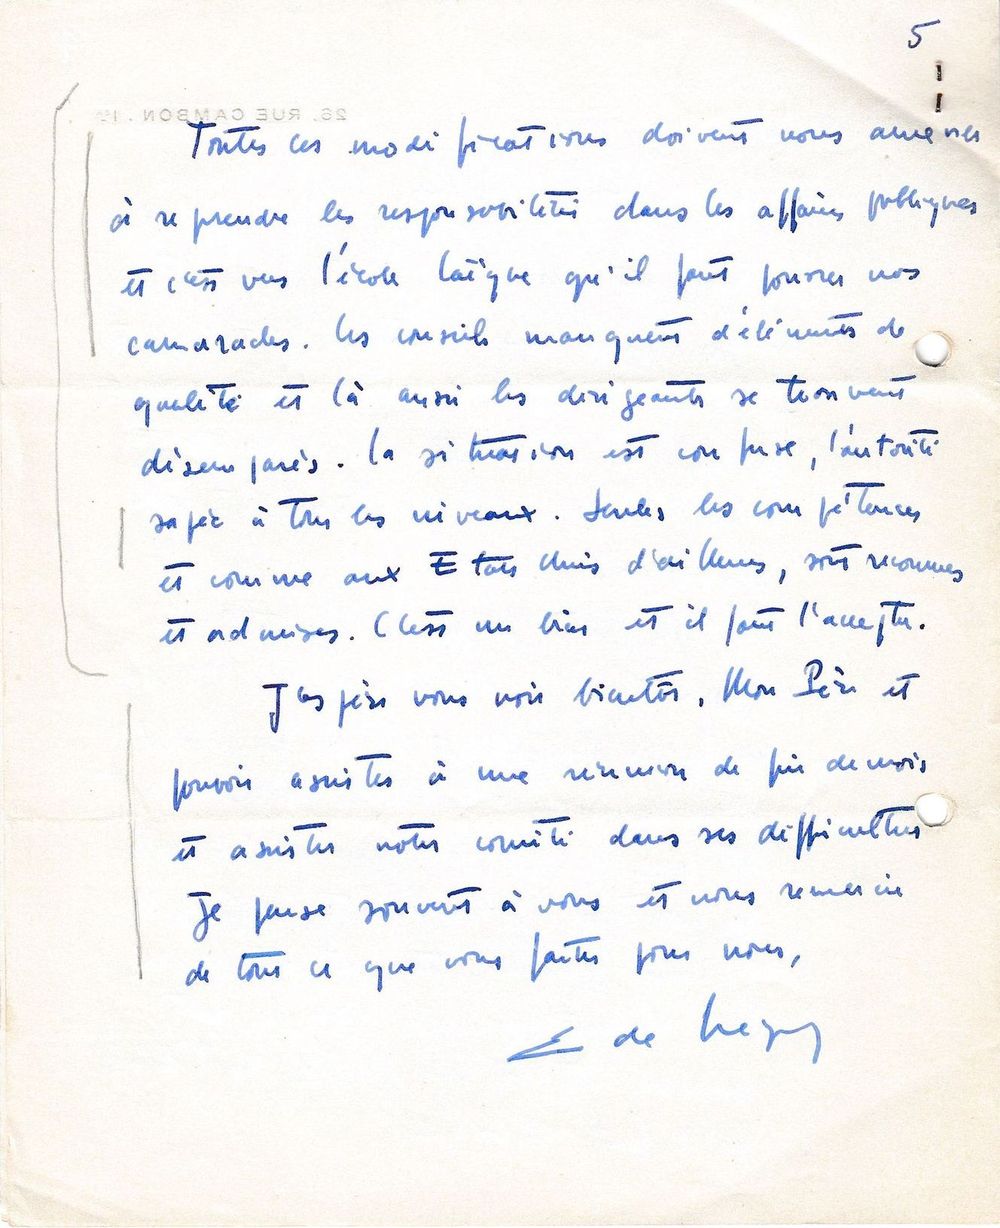 5
26, RUE CAMBON . 1er
Toutes ces modifications doivent nous amener
à reprendre les responsabilités dans les affaires publiques
et c'est vers l'école laïque qu'il faut pousser nos
camarades. Les conseils manquent d'éléments de
qualité et là aussi les dirigeants se trouvent
désemparés. La situation est confuse, l'autorité
sapée à tous les niveaux. Seules les compétences
et comme aux Etats Unis d'ailleurs, sont reconnues
et admises. C'est un bien et il faut l'accepter.
J'espère vous voir bientôt, Mon Père et
pouvoir assister à une réunion de fin de mois
et assister notre comité dans ses difficultés
Je pense souvent à vous et vous remercie
de tout ce que vous faites pour nous,
E de